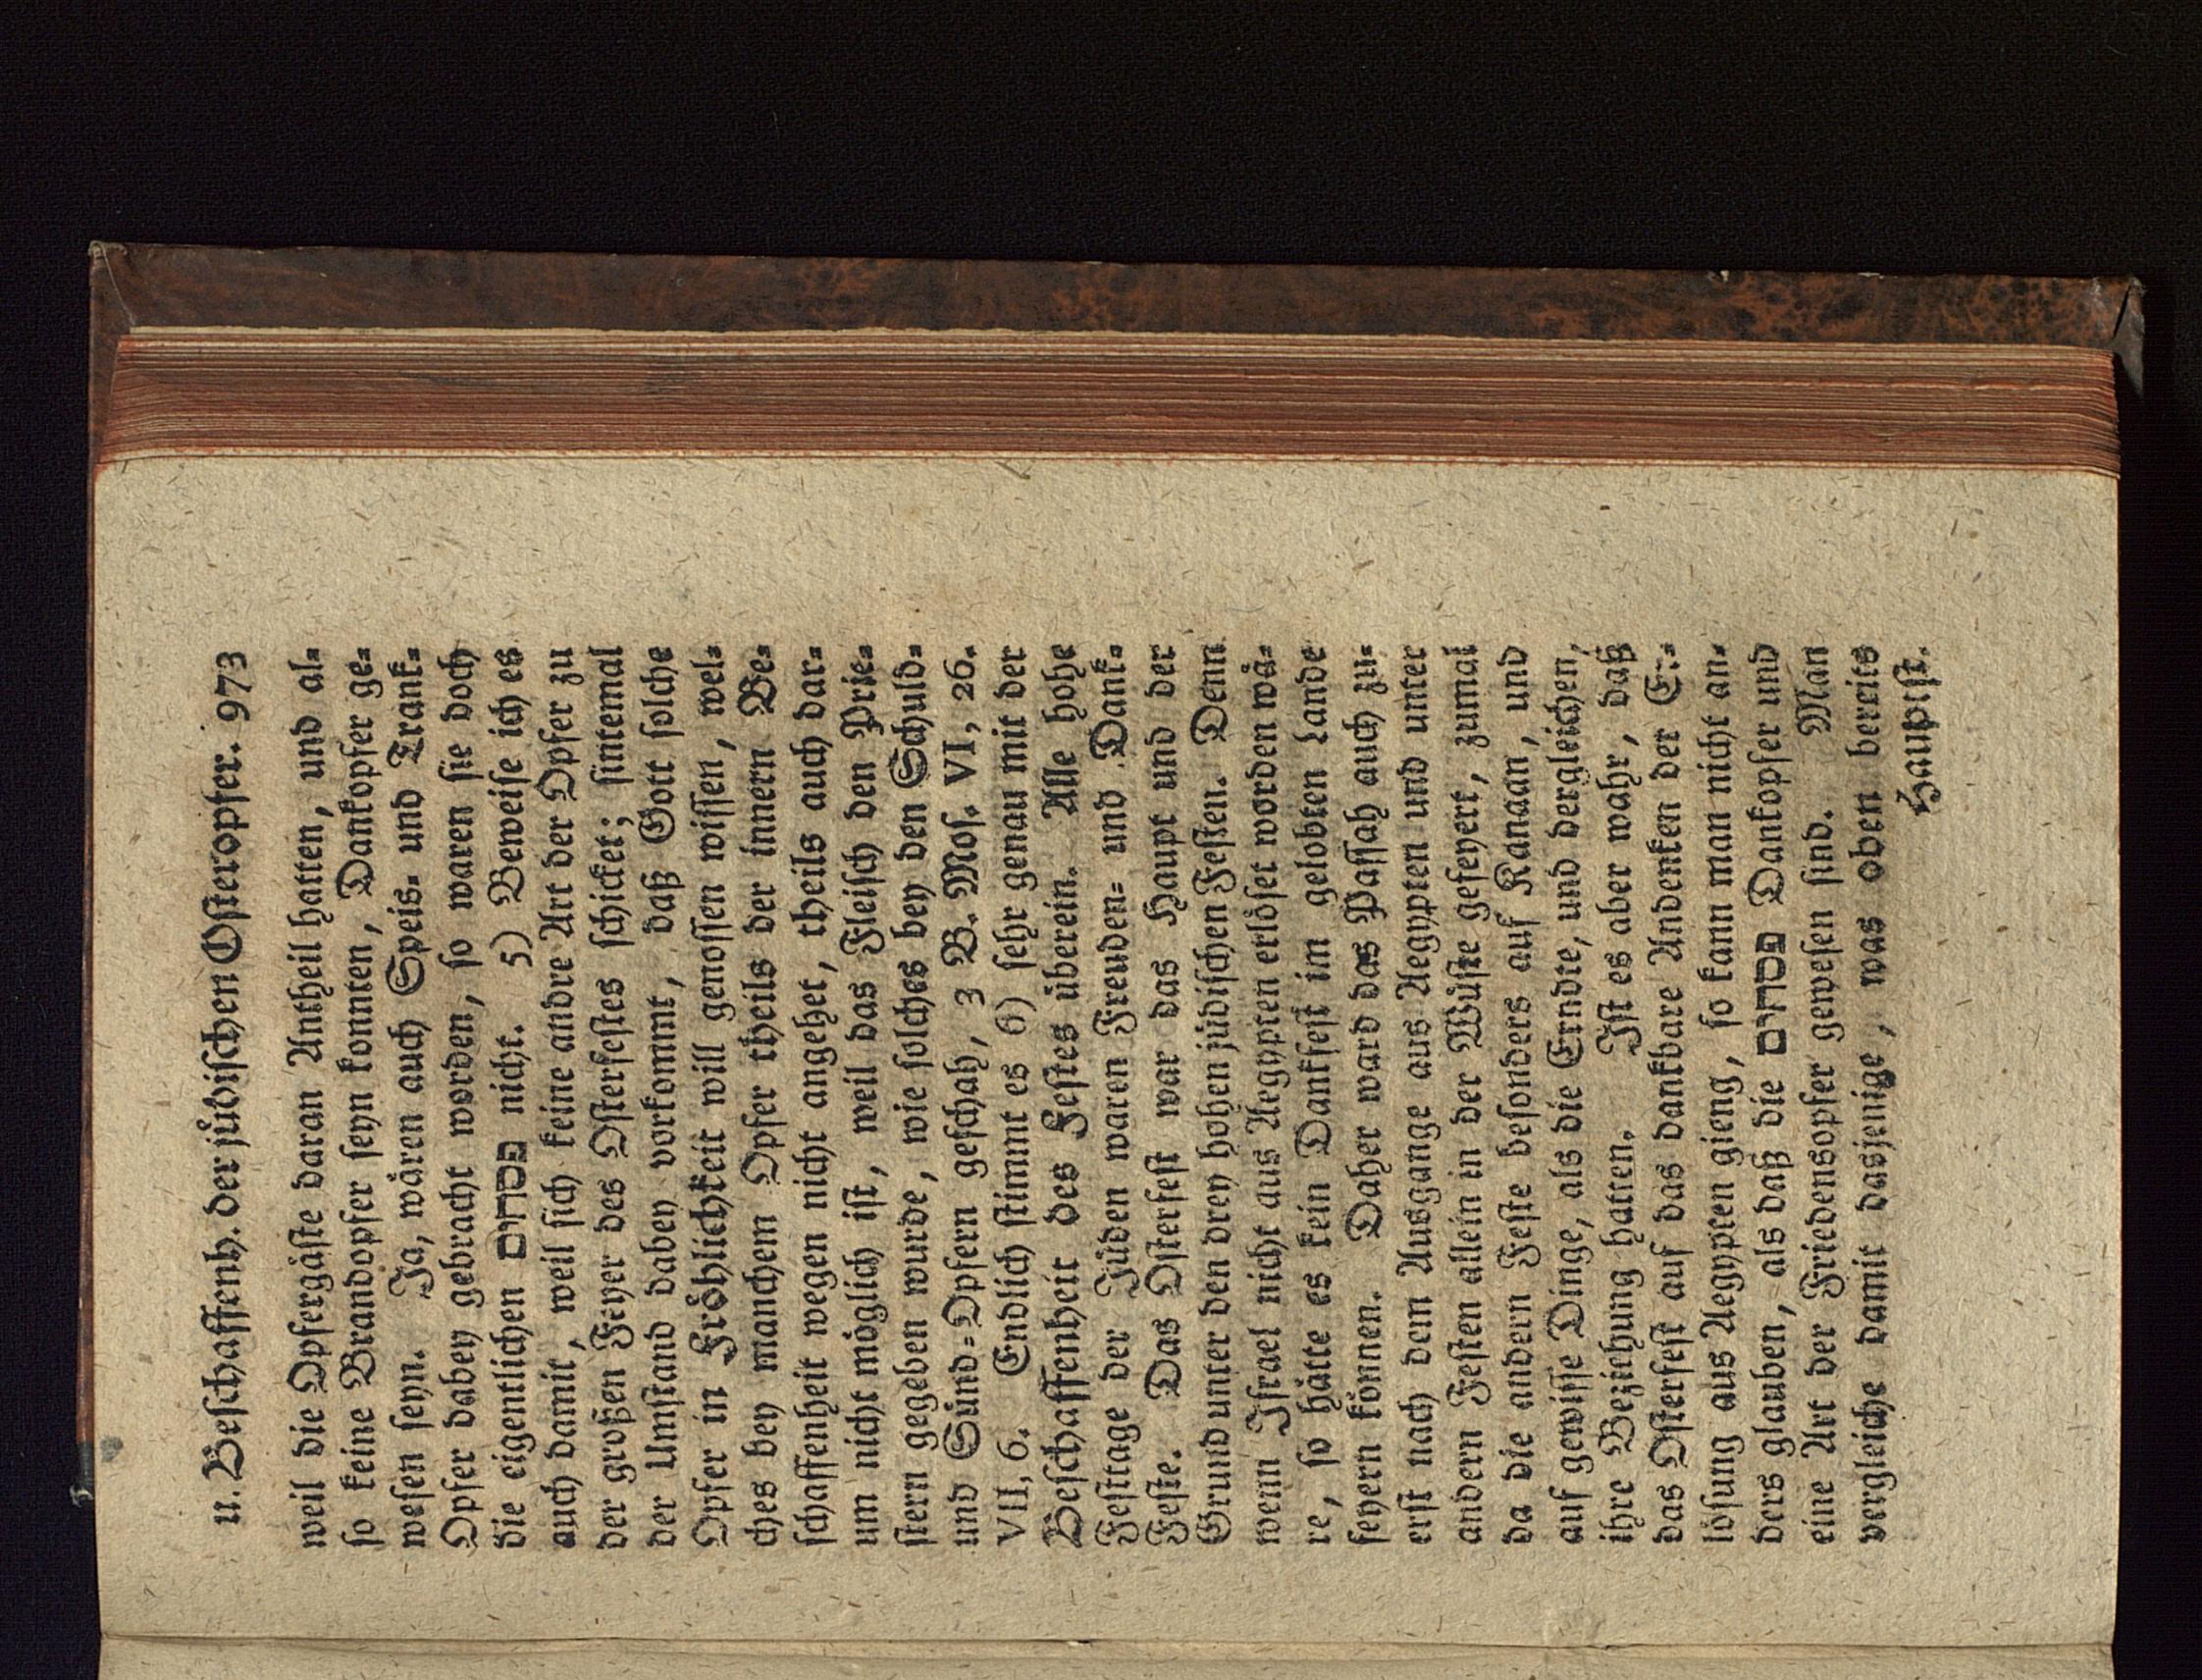 u. Beſchaffenh. der jüdiſchen Oſteropfer. 973
weil die Opfergäſte daran Antheil hatten, und al⸗
ſo keine Brandopfer ſeyn konnten, Dankopfer ge⸗
weſen ſeyn. Ja, wären auch Speis⸗ und Trank⸗
Opfer dabey gebracht worden, ſo waren ſie doch
die eigentlichen פסחים nicht. 5) Beweiſe ich es
auch damit, weil ſich keine andre Art der Opfer zu
der großen Feyer des Oſterfeſtes ſchicket; ſintemal
der Umſtand dabey vorkommt, daß Gott ſolche
Opfer in Fröhlichkeit will genoſſen wiſſen, wel⸗
ches bey manchem Opfer theils der innern Be⸗
ſchaffenheit wegen nicht angehet, theils auch dar⸗
um nicht möglich iſt, weil das Fleiſch den Prie⸗
ſtern gegeben wurde, wie ſolches bey den Schuld⸗
und Sünd⸗Opfern geſchah, 3 B. Moſ. VI, 26.
VII, 6. Endlich ſtimmt es 6) ſehr genau mit der
Beſchaffenheit des Feſtes überein. Alle hohe
Feſttage der Jüden waren Freuden⸗ und Dank⸗
Feſte. Das Oſterfeſt war das Haupt und der
Grund unter den drey hohen jüdiſchen Feſten. Denn
wenn Iſrael nicht aus Aegypten erlöſet worden wä⸗
re, ſo hätte es kein Dankfeſt im gelobten Lande
feyern können. Daher ward das Paſſah auch zu⸗
erſt nach dem Ausgange aus Aegypten und unter
andern Feſten allein in der Wüſte gefeyert, zumal
da die andern Feſte beſonders auf Kanaan, und
auf gewiſſe Dinge, als die Erndte, und dergleichen,
ihre Beziehung hatten. Iſt es aber wahr, daß
das Oſterfeſt auf das dankbare Andenken der Er⸗
löſung aus Aegypten gieng, ſo kann man nicht an⸗
ders glauben, als daß die פסחים Dankopfer und
eine Art der Friedensopfer geweſen ſind. Man
vergleiche damit dasjenige, was oben bereits
Hauptſt.